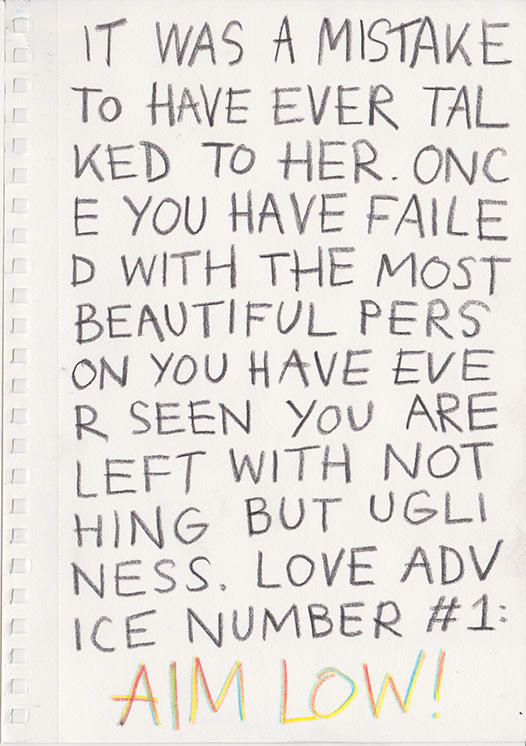 IT WAS A MISTAKE
TO HAVE EVER TAL
KED TO HER. ONC
E YOU HAVE FAILE
D WITH THE MOST
BEAUTIFUL PERS
ON YOU HAVE EVE
R SEEN YOU ARE
LEFT WITH NOT
HING BUT UGLI
NESS. LOVE ADV
ICE NUMBER #1:
AIM LOW!